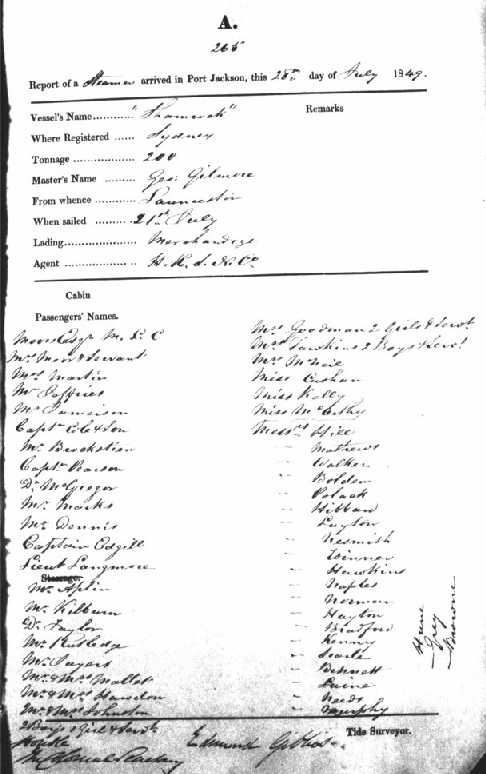 A.
265
Report of a Steamer arrived in Port Jackson, this 25th day of July 1849.
Vessel's Name "Shamrock"
Remarks
Where Registered Sydney
Tonnage 200
Master's Name Geo. Gilmore
From whence Launceston
When sailed 21st July
Lading Merchandize
Agent H. R. S. N. Co
Cabin
Passengers' Names.
Moor Esqr M. L. C
Mrs Moor & Servant
Mrs Martin
Mr Jeffries
Mr Jamieson
Captn & Son
Mr
Captn Pearson
Dr McGregor
Mr Marks
Mr Dennis
Captain Edgill
Lieut Langmore
Steerage
Mr Aplin
Mr Kilburn
Dr Taylor
Mr Rutledge
Mr Sayers
Mr & Mrs Mallet
Mr & Mrs
Mr & Mrs Johnston
2 Boys 1 Girl & Servt
Mrs Goodman 2 Girls & Servt
Mrs Hawkins 2 Boys & Servt
Mrs McNeil
Miss
Miss Kelly
Miss McCarthy
Messrs Hill
" Mathews
" Walker
" Bolden
" Polack
" Hibbard
" Layton
" Nesmith
"
" Hawkins
" Naples
" Norman
" Hayton
" Bradford
" Kenny
" Searle
" Bennett
"
"
" Murphy
Hume
Guy
Edmund
Tide Surveyor.